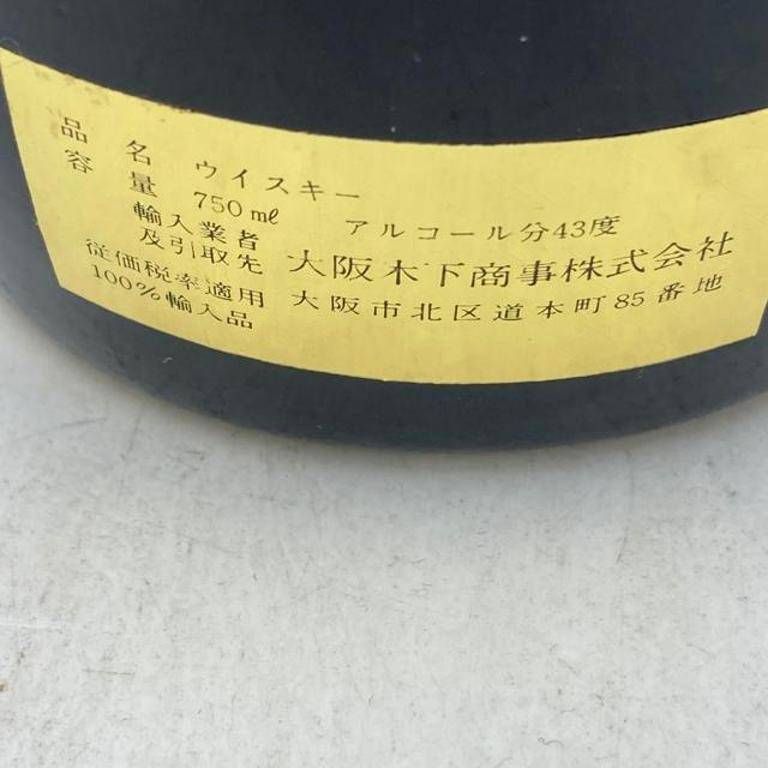 品名 ウイスキー
容量 750ml アルコール分43度
輸入業者
及引取先 大阪木下商事株式会社
従価税率適用 大阪市北区道本町85番地
100%輸入品